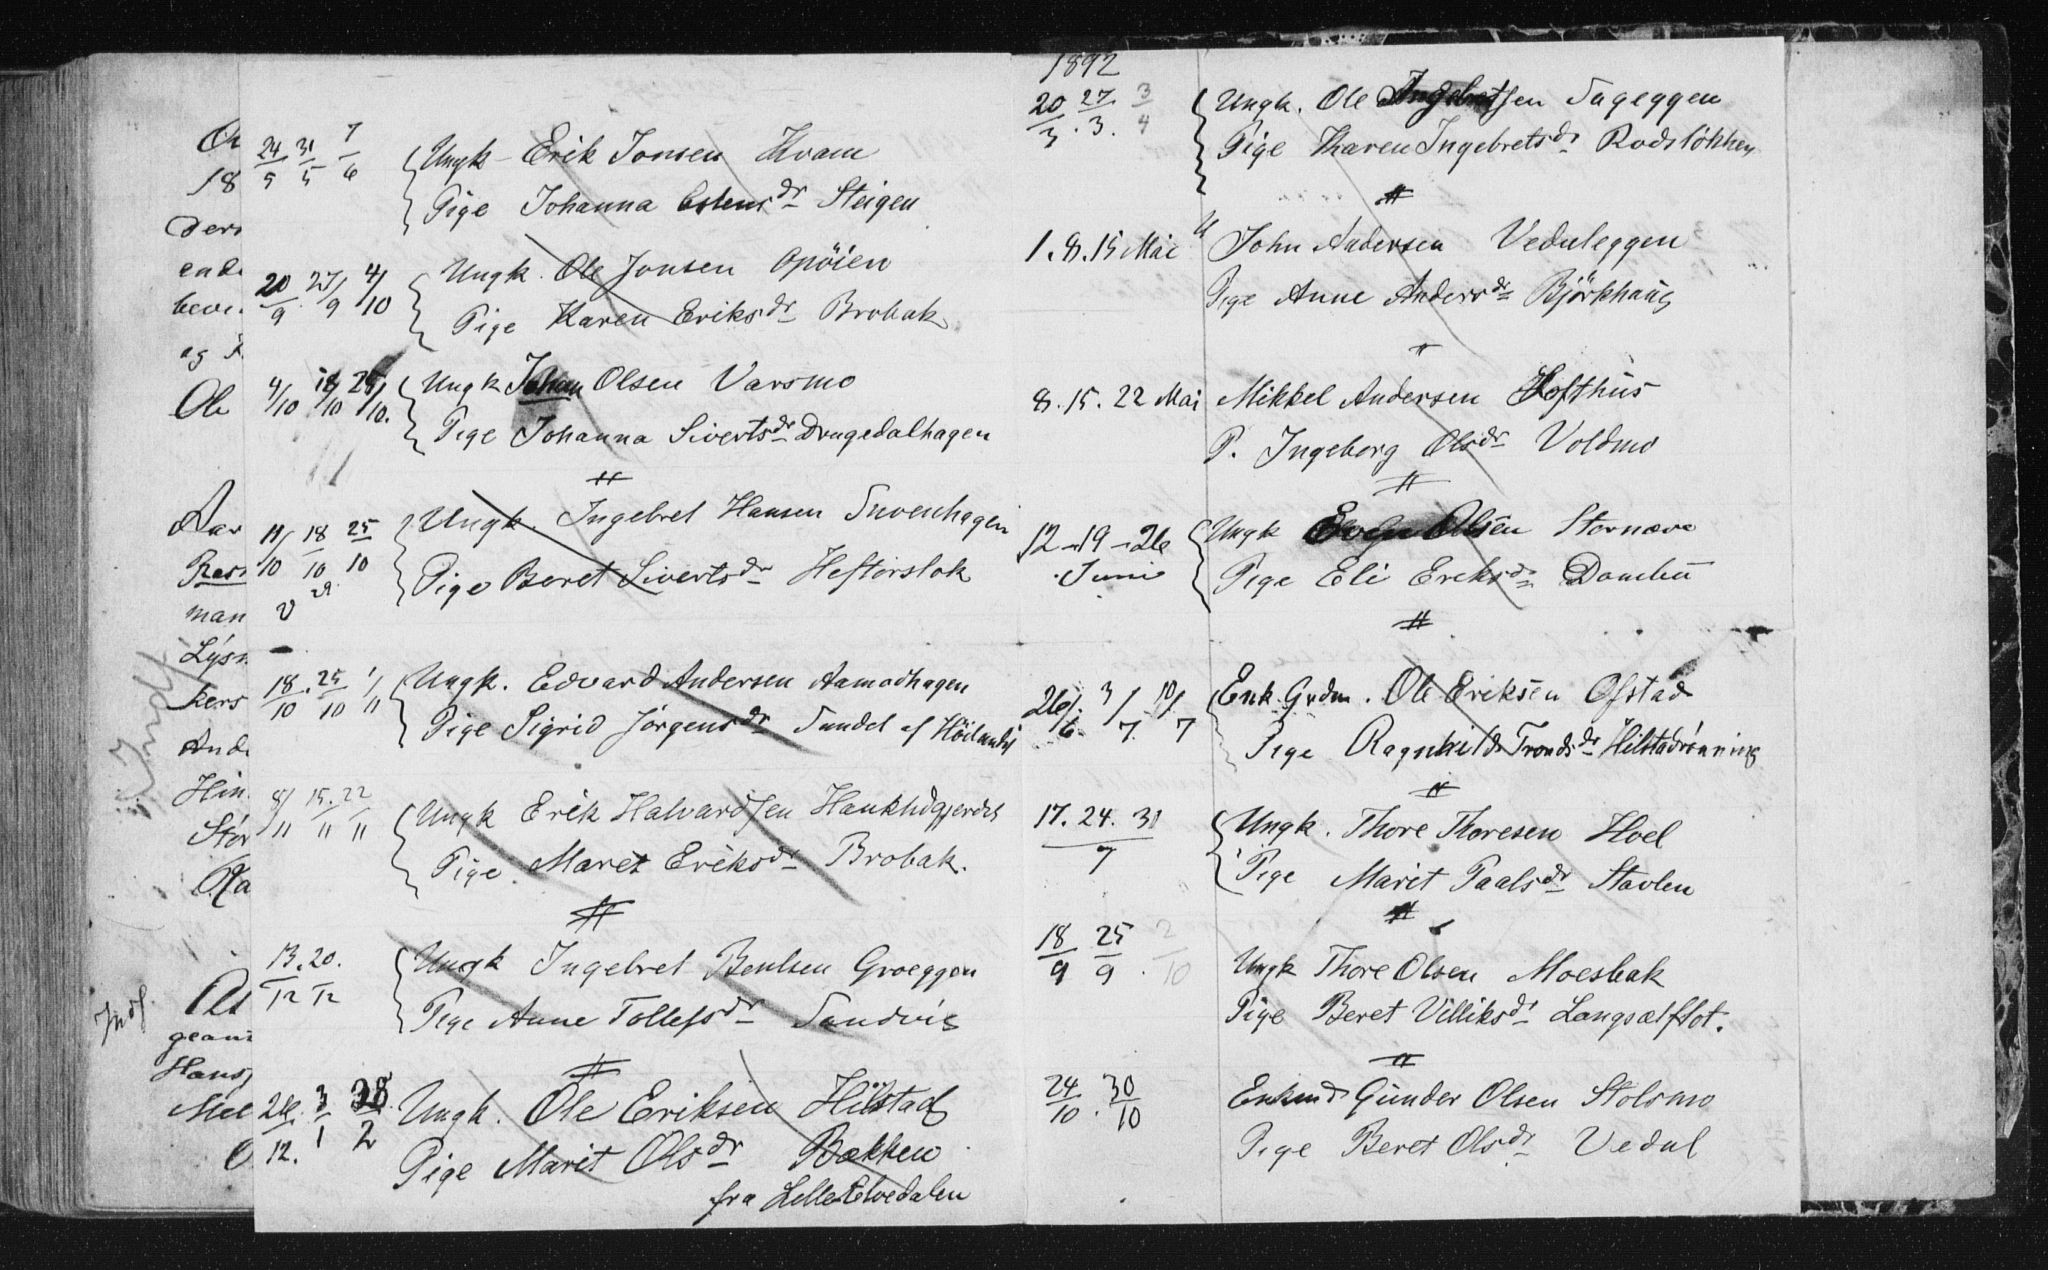 24/5 31/5 7/6 Ungk. Erik Jonsen Kvam
Pige Johanna Estensdr Steigen
20/9 27/9 4/10 Ungk. Ole Jonsen Opöien
Pige Karen Eriksdr Brobak
4/10 18/10 25/10. Ungk Johan Olsen Varsmo
Pige Johanna Sivertsdr Drugedalhagen
11/10 18/10 25/10 Ungk. Ingebret Hansen Suvenhagen
Pige Beret Sivertsdr Hefterslok
18/10 25/10 1/11 Ungk. Edvard Andersen Aamodhagen
Pige Sigrid Jørgensdr Sundet af
8/11 15/11 22/11 Ungk Erik Halvardsen
Pige Maret Eriksdr Brobak.
13/12 20/12 Ungk Ingebret Bentsen Groeggen
Pige Anne Tollefsdr Sandvig
26/12. 3/1 28/2 Ungk. Ole Eriksen Hilstad
Pige Marit Olsdr Bækken
fra Lille Elvedalen
Indf
Indf.
1892
20/3. 27/3. 3/4 Ungk. Ole Ingebretsen Sageggen
Pige Karen Ingebretsdr Rodslökken
1. 8. 15 Mai U John Andersen Veduleggen
Pige Anne Andersdr Björkhaug
8. 15. 22 Mai Mikkel Andersen Hofthus
P. Ingeborg Olsdr Voldmo
12 - 19 - 26 Ungk Olsen Stornæve
Juni Pige Eli Ereksdr Dombu
26/6. 3/7. 10/7 Enk. Grdm. Ole Eriksen Ofstad
Pige Ragnhild Trondsdr Hilstadrönning
17. 24. 31/7 Ungk. Thore Thoresen Hoel
Pige Marit Paalsdr Stavlen
18/9 25/9. 2/10 Ungk Thore Olsen Moesbak
Pige Beret Villiksdr Langsætflot.
24/10. 30/10 Enkmd Gunder Olsen Stolsmo
Pige Beret Olsdr Vedul